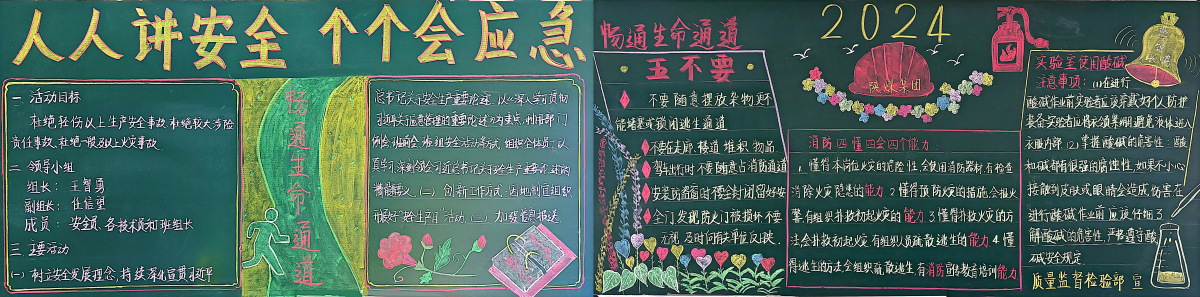 人人讲安全 个个会应急
一 活动目标
杜绝轻伤以上生产安全事故 杜绝较大涉险
责任事故、杜绝一般及以上火灾事故
二 领导小组
组长： 王智勇
副组长： 任信望
成员： 安全员、各技术员和班组长
三 主要活动
(一) 树立安全发展理念，持续深化宣贯习近平
畅通生命通道
总书记关于安全生产重要论述，以
习近平关于应急管理的重要论述为重点，利用部门
例会 班前会 班组安全活动 组织全体员工认
真学习 深刻领会习总书记关于安全生产重要论述的
(二) 创新工作方式 因地制宜组织
开展好“安全生产月”活动 (三) 加强信息报送
畅通生命通道
五不要
不要随意摆放杂物更不
能堵塞或锁闭逃生通道
不要在走廊、楼道堆积物品
驾车出行时不要随意占消防通道
安装防盗窗时不要全封闭留好安
全门 发现防火门被损坏不要
无视 及时向有关单位反映
2024
陕煤集团
消防四懂四会四个能力
1. 懂得本岗位火灾的危险性 会使用消防器材 有检查
消除火灾隐患的能力 2 懂得预防火灾的措施 会报火
警 有组织扑救初起火灾的能力 3 懂得扑救火灾的方
法会扑救初起火灾 有组织人员疏散逃生的能力 4 懂
得逃生的方法会组织疏散逃生 有消防宣传教育培训能力
实验室使用酸碱
注意事项：(1)在进行
酸碱作业前实验者应该穿戴好个人防护
装备 实验者应将衣领 避免液体进入
衣服内部 (2) 掌握酸碱的危害性：酸
和碱都有很强的腐蚀性，如果不小心
接触到皮肤或眼睛会造成伤害 在
进行酸碱作业前应该仔细了
解酸碱的危害性，严格遵守酸
碱安全规定
质量监督检验部 宣